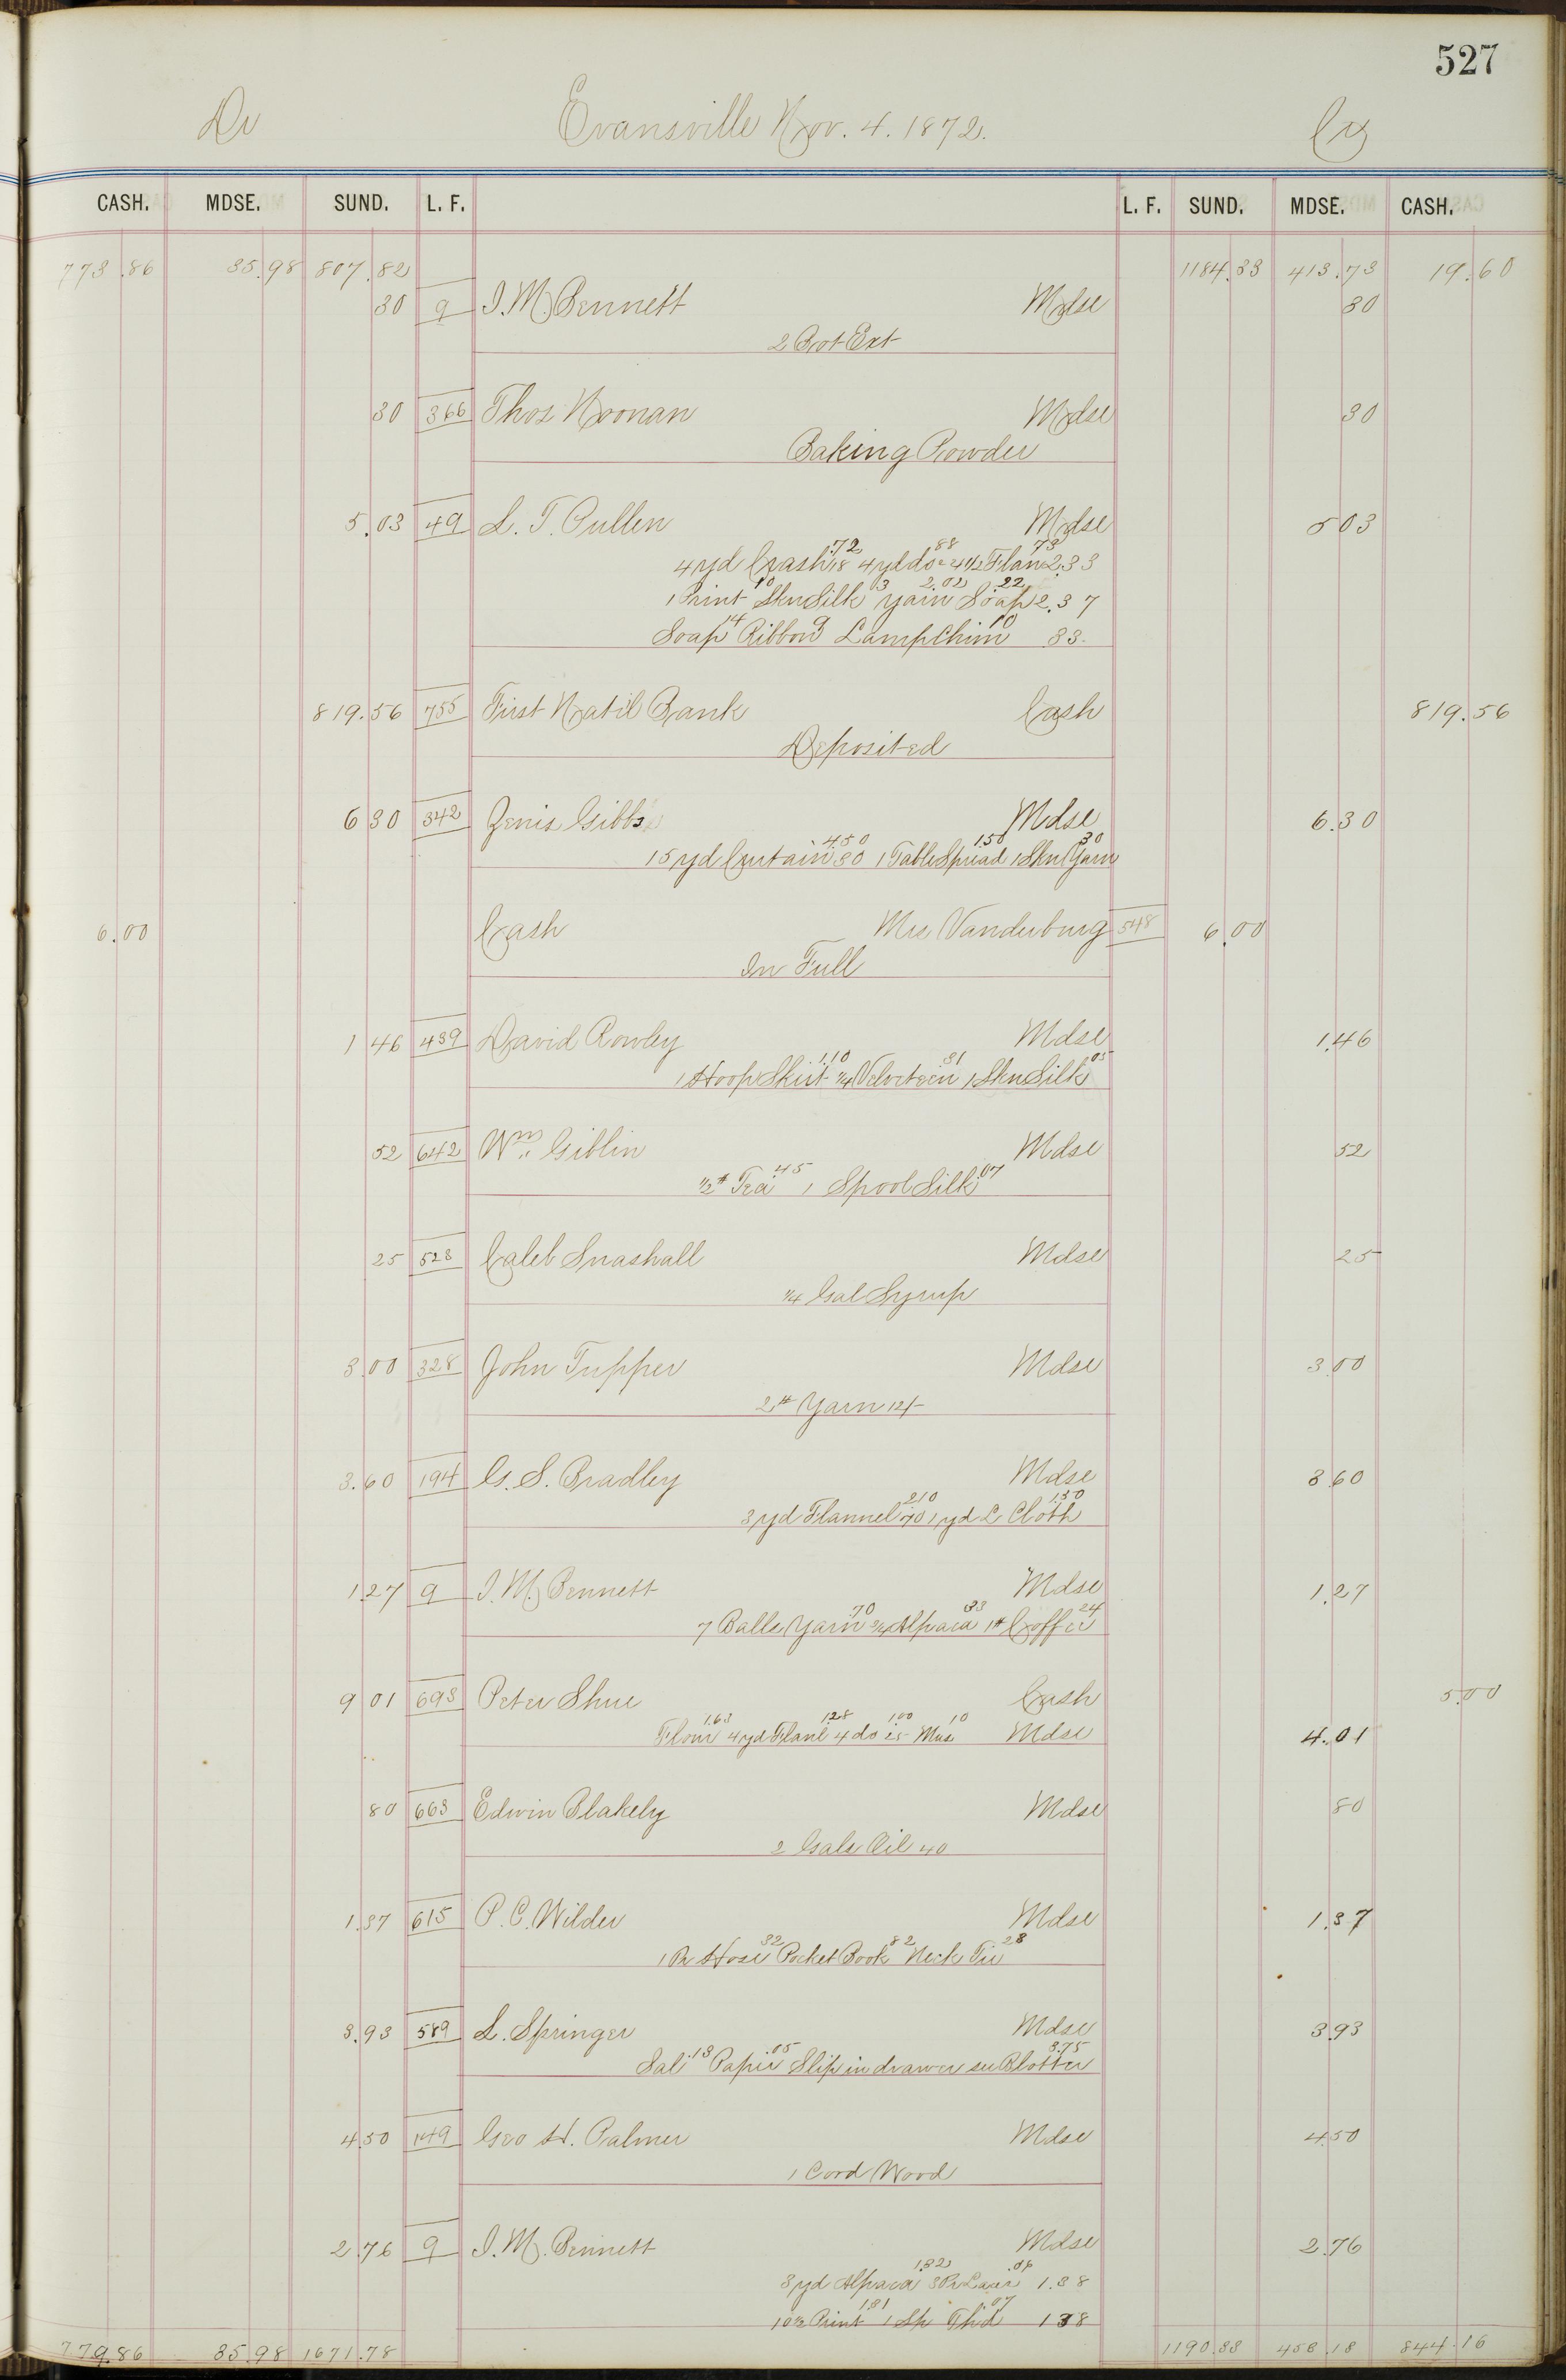 527
Dr Evansville Nov. 4. 1872. Cr
CASH. MDSE. SUND. L. F. L. F. SUND. MDSE. CASH.
773.86 35.98 807.82 1184.33 413.73 19.60
30 9 I. M. Bennett Mdse 30
2 Bot Ext
30 366 Thos Noonan Mdse 30
Baking Powder
5.03 49 L. T. Pullen Mdse 5 03
4 yd Crash 18 .72 4 yd do 88 4 1/2 Flan 73 2.33
1 Print 10 Skn Silk 3 Yarn 2.02 Soap 22 2.37
Soap 14 Ribbon 9 Lamp Chim 10 33
819.56 755 First Nat'l Bank Cash 819.56
Deposited
6 30 342 Zenis Gibbs Mdse 6.30
15 yd Curtain 30 4.50 1 Table Spread 1.50 1 Skn Yarn 30
6.00 Cash Mrs Vanderburg 548 6.00
In Full
1 46 439 David Rowley Mdse 1.46
1 Hoop Skirt 1.10 1/4 Velveteen 31 1 Skn Silk 05
52 642 Wm Giblin Mdse 52
1/2 # Tea 45 1 Spool Silk 07
25 528 Caleb Snashall Mdse 25
1/4 Gal Syrup
3.00 328 John Tupper Mdse 3.00
2 # Yarn 12/-
3.60 194 G. S. Bradley Mdse 3 60
3 yd Flannel 70 2.10 1 yd L Cloth 1.50
1.27 9 I. M. Bennett Mdse 1.27
7 Balls Yarn 70 3/4 Alpaca 33 1 # Coffee 24
9 01 693 Peter Shue Cash 5.00
Flour 1.63 4 yd Flanl 1.28 4 do 25 1.00 Mus 10 Mdse 4.01
80 663 Edwin Blakely Mdse 80
2 Gals Oil 40
1.37 615 P. C. Wilder Mdse 1.37
1 Pr Hose 32 Pocket Book 82 Neck Tie 23
3.93 589 L. Springer Mdse 3.93
Sal .13 Paper .05 Slip in drawer see Blotter 3.75
4.50 149 Geo H. Palmer Mdse 4.50
1 Cord Wood
2.76 9 I. M. Bennett Mdse 2.76
3 yd Alpaca 1.32 3 Pr Laces .06 1.38
10 1/2 Print 1.31 1 Sp Th'd .07 1 38
779.86 35.98 1671.78 1190.33 458.18 844.16